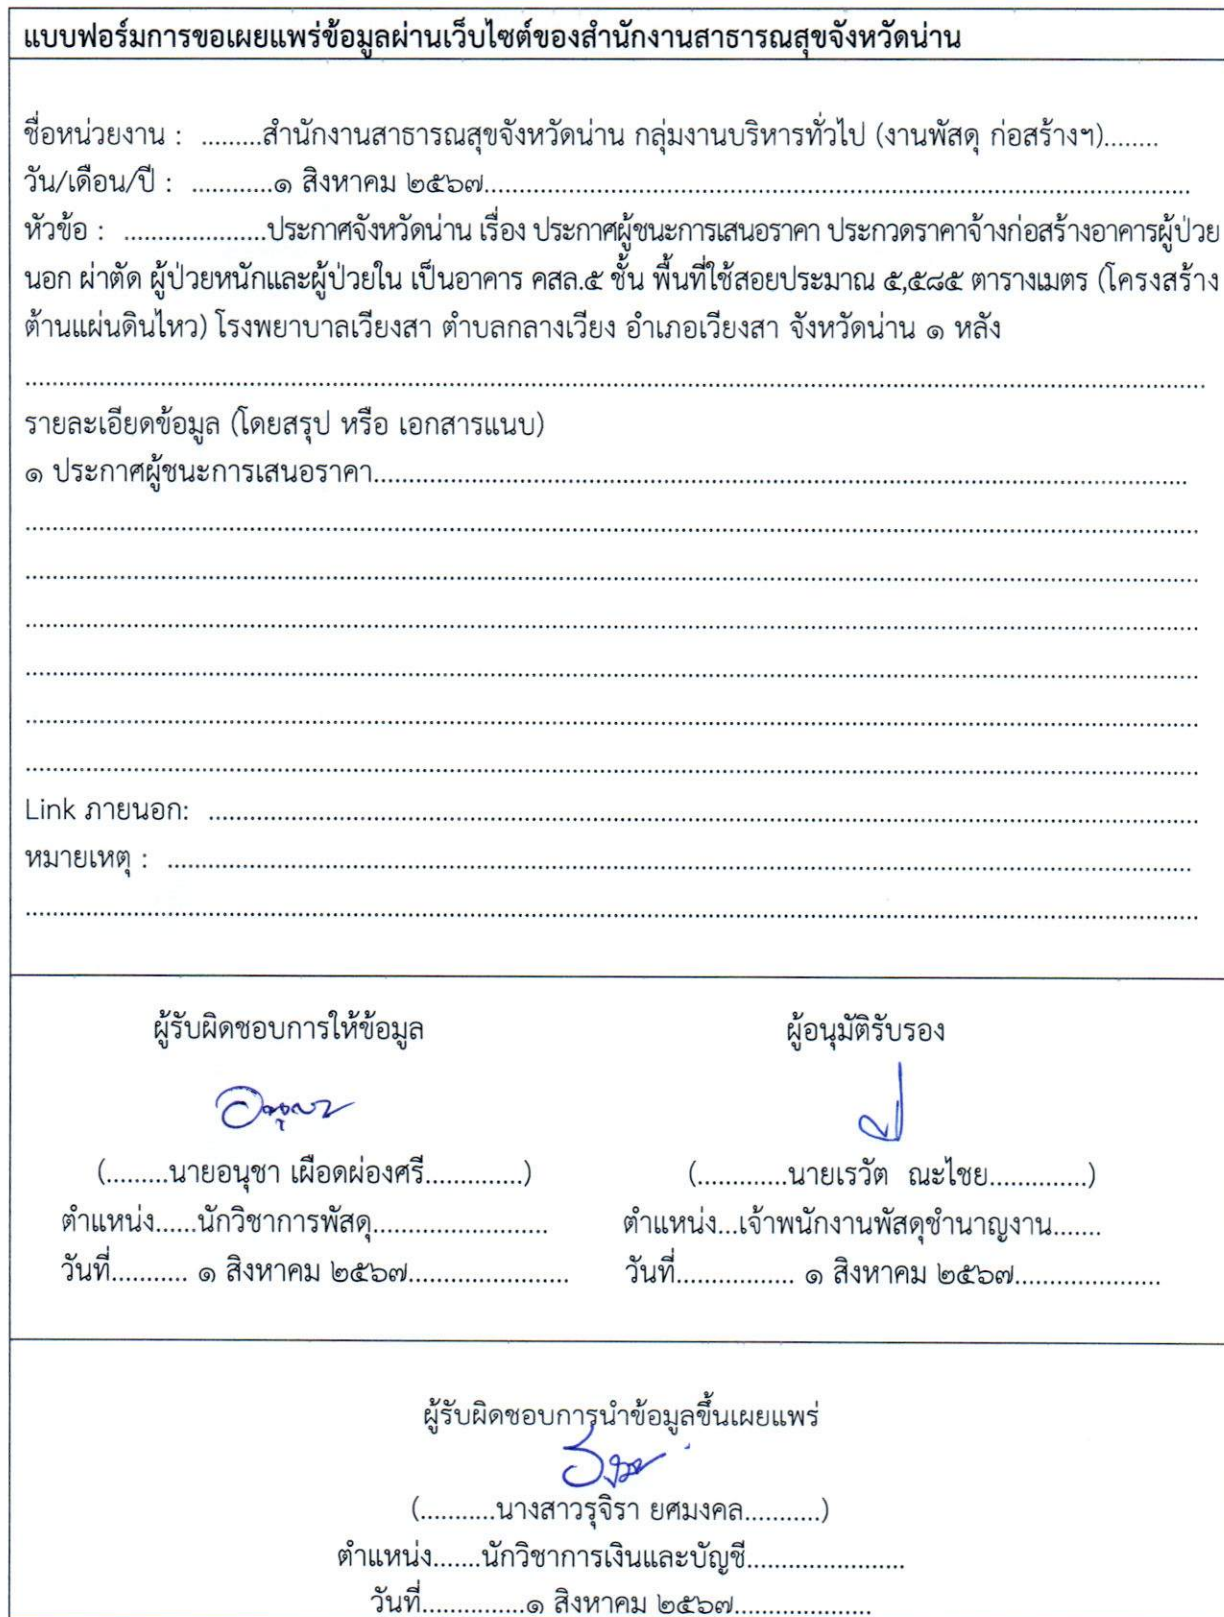 แบบฟอร์มการขอเผยแพร่ข้อมูลผ่านเว็บไซต์ของสำนักงานสาธารณสุขจังหวัดน่าน
ชื่อหน่วยงาน : .........สำนักงานสาธารณสุขจังหวัดน่าน กลุ่มงานบริหารทั่วไป (งานพัสดุ ก่อสร้างฯ)........
วัน/เดือน/ปี : ............๑ สิงหาคม ๒๕๖๗..........................................................................................................
หัวข้อ : .....................ประกาศจังหวัดน่าน เรื่อง ประกาศผู้ชนะการเสนอราคา ประกวดราคาจ้างก่อสร้างอาคารผู้ป่วย
นอก ผ่าตัด ผู้ป่วยหนักและผู้ป่วยใน เป็นอาคาร คสล.๕ ชั้น พื้นที่ใช้สอยประมาณ ๕,๕๘๕ ตารางเมตร (โครงสร้าง
ต้านแผ่นดินไหว) โรงพยาบาลเวียงสา ตำบลกลางเวียง อำเภอเวียงสา จังหวัดน่าน ๑ หลัง
รายละเอียดข้อมูล (โดยสรุป หรือ เอกสารแนบ)
๑ ประกาศผู้ชนะการเสนอราคา..........................................................................................................................
Link ภายนอก: ....................................................................................................................................................
หมายเหตุ : .........................................................................................................................................................
ผู้รับผิดชอบการให้ข้อมูล ผู้อนุมัติรับรอง
(.........นายอนุชา เผือดผ่องศรี..............) (.............นายเรวัต ณะไชย..............)
ตำแหน่ง......นักวิชาการพัสดุ......................... ตำแหน่ง...เจ้าพนักงานพัสดุชำนาญงาน.......
วันที่........... ๑ สิงหาคม ๒๕๖๗....................... วันที่................. ๑ สิงหาคม ๒๕๖๗.....................
ผู้รับผิดชอบการนำข้อมูลขึ้นเผยแพร่
(...........นางสาวรุจิรา ยศมงคล...........)
ตำแหน่ง.......นักวิชาการเงินและบัญชี.......................
วันที่...............๑ สิงหาคม ๒๕๖๗....................